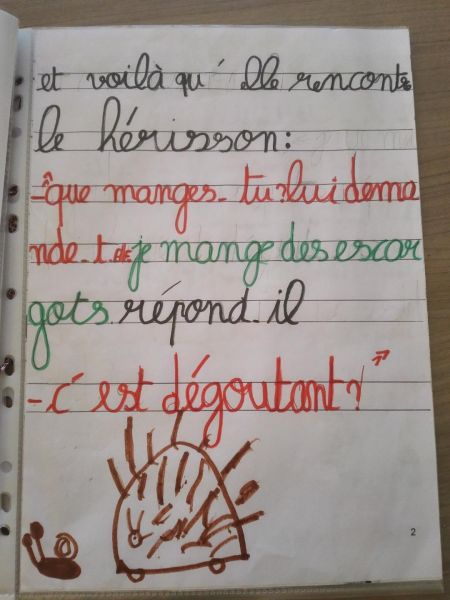 et voilà qu'elle rencontre
le hérisson:
-que manges-tu?lui dema
nde-t-elle je mange des escar
gots répond-il
-c'est dégoutant?
2